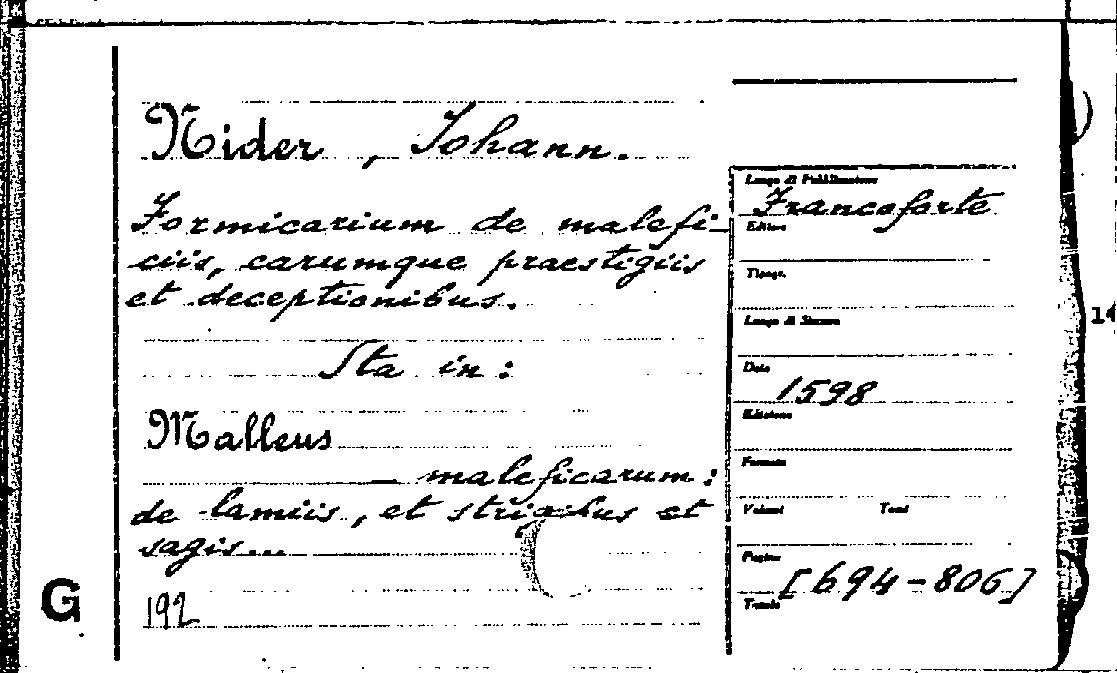 Nider, Johann.
Formicarium de malefi-
ciis, earumque praestigiis
et deceptionibus.
Sta in:
Malleus
maleficarum:
de lamiis, et strigibus et
sagis...
G
192
Luogo di Pubblicazione
Francoforte
Editore
Tipogr.
Luogo di Stampa
Data
1598
Edizione
Formato
Volumi Tomi
Pagine
[694-806]
Tavole
14